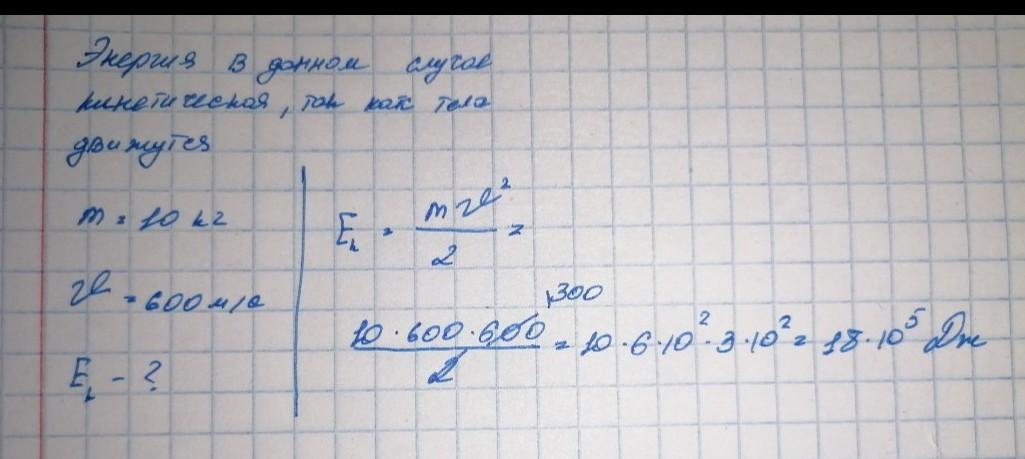 Энергия в данном случае
кинетическая, так как тела
движутся
m = 10 кг
υ = 600 м/с
Eк - ?
Eк = mυ² / 2 =
10 · 600 · 600 / 2 = 10 · 6 · 10² · 3 · 10² = 18 · 10⁵ Дж
300